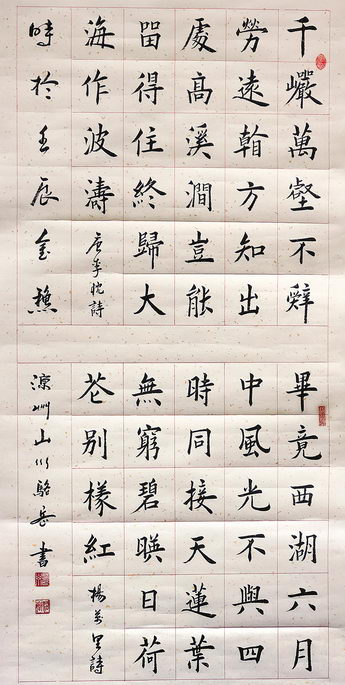 千巗萬壑不辭
勞遠翰方知出
處高溪澗豈能
畱得住終歸大
海作波濤
唐李忱詩
時於壬辰金穐
畢竟西湖六月
中風光不與四
時同接天蓮葉
無窮碧暎日荷
花別樣紅
楊萬里詩
涼州山川駱岳書